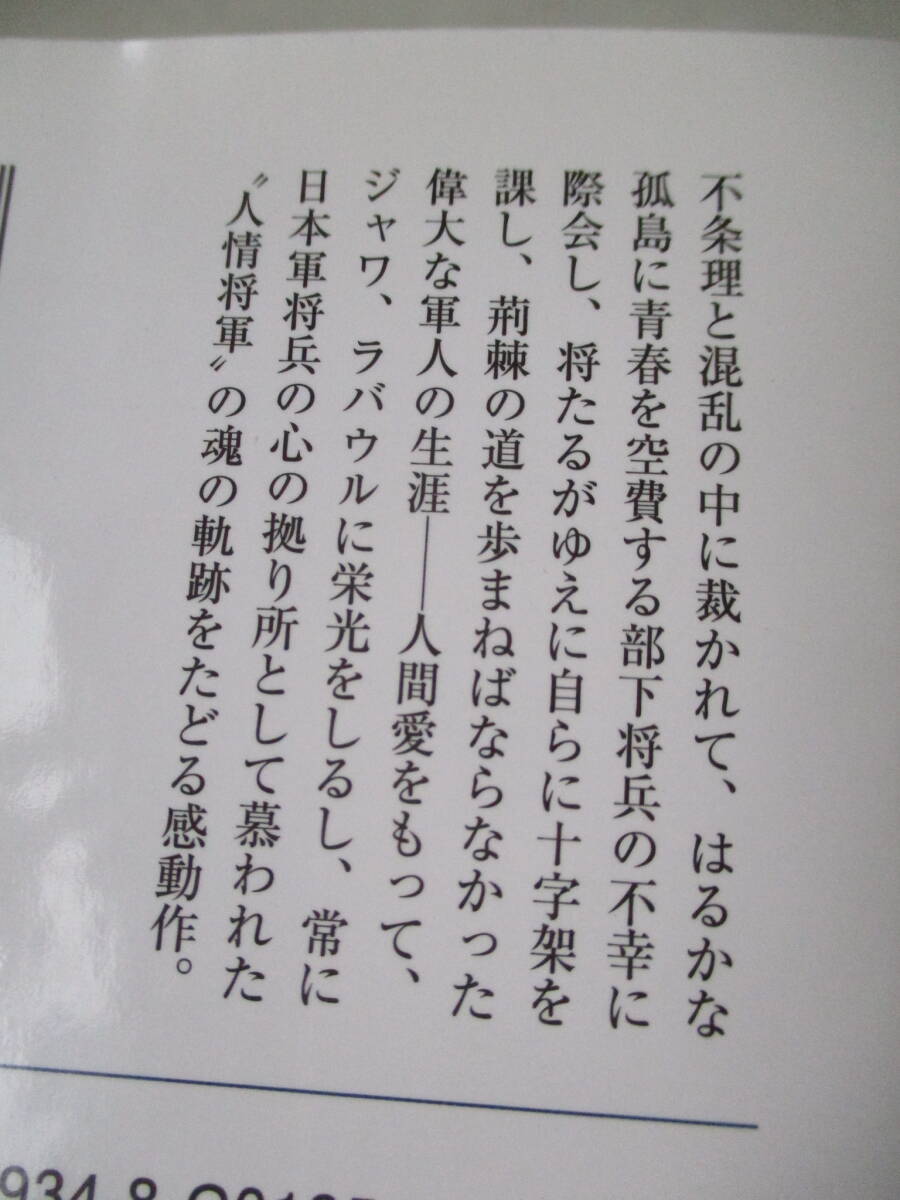 不条理と混乱の中に裁かれて、はるかな
孤島に青春を空費する部下将兵の不幸に
際会し、将たるがゆえに自らに十字架を
課し、荊棘の道を歩まねばならなかった
偉大な軍人の生涯――人間愛をもって、
ジャワ、ラバウルに栄光をしるし、常に
日本軍将兵の心の拠り所として慕われた
〝人情将軍〟の魂の軌跡をたどる感動作。